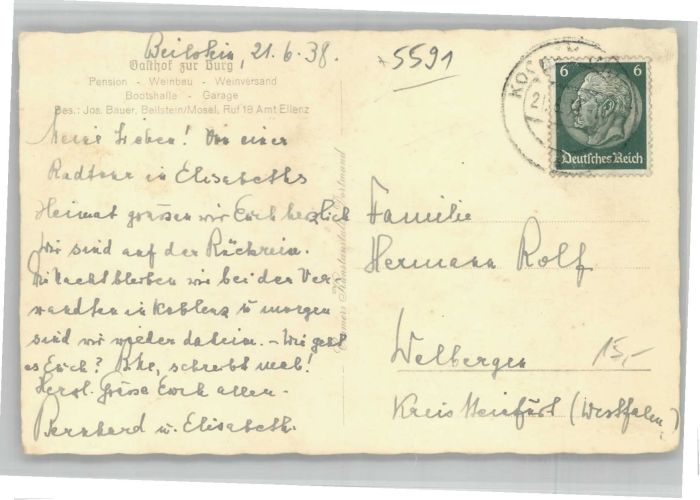 Beilstein, 21.6.38.
Gasthof zur Burg
Pension - Weinbau - Weinversand
Bootshalle - Garage
Bes.: Jos. Bauer, Beilstein/Mosel, Ruf 18 Amt Ellenz
Meine Lieben! Von einer
Radtour in Elisabeths
Heimat grüssen wir Euch herzlich
Wir sind auf der Rückreise.
Die Nacht bleiben wir bei den Ver-
wandten in Koblenz u morgen
sind wir wieder daheim. - Wie geht
es Euch? Bitte, schreibt mal!
Herzl. Grüsse Euch allen -
Bernhard u. Elisabeth.
5591
6 6
Deutsches Reich
Familie
Hermann Rolf
Welbergen
15,-
Kreis Steinfurt (Westfalen)